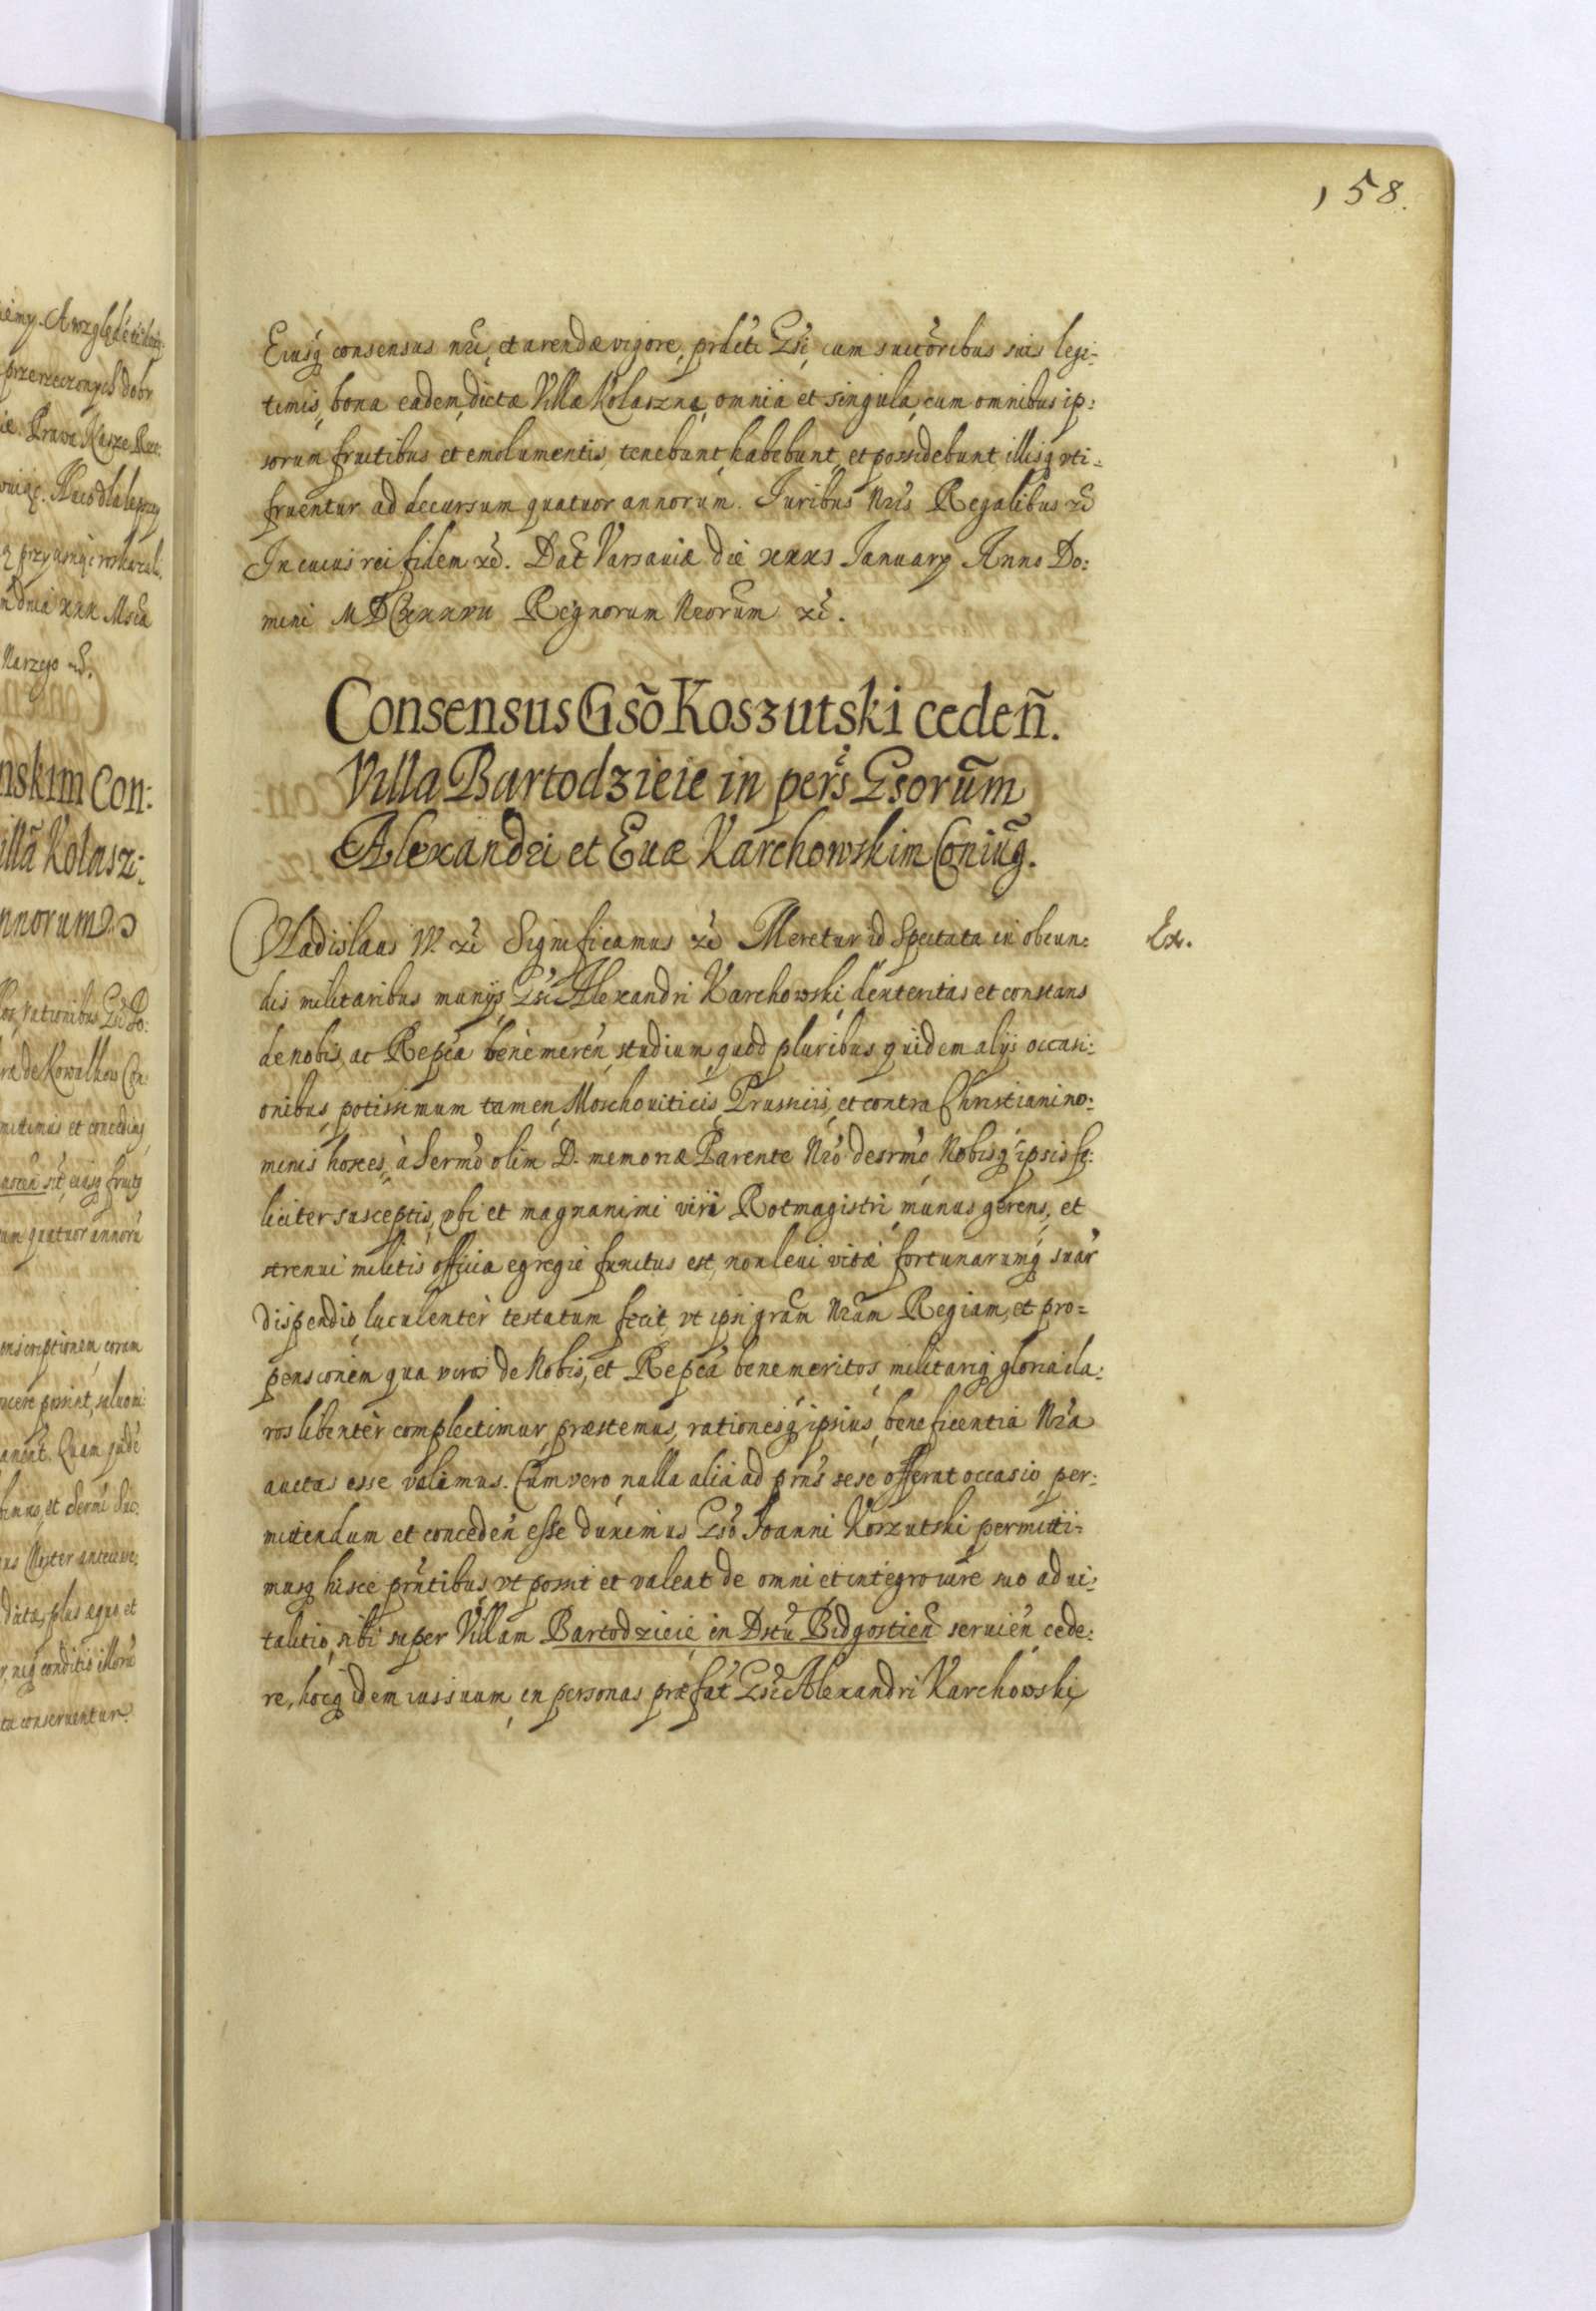 158.
Eiusq consensus nri, et arendæ vigore, prdcti Gsi, cum succoribus suis legi-
timis, bona eadem dictæ Villæ Kolaszna, omnia et singula, cum omnibus ip:
sorum fructibus et emolumentis, tenebunt, habebunt, et possidebunt, illisq vti-
fruentur ad decursum quatuor annorum. Juribus Nris Regalibus &c
In cuius rei fidem &c. Dat Varsauiæ die xxx January Anno Do:
mini MDCxxxvii Regnorum Nrorum &c.
Consensus Gsõ Koszutski cedeñ.
Villa Bartodzieie in pers Gsorum
Alexandri et Euæ Karchowskim Coniug.
Vladislaus IV. &c Significamus &c Meretur id Spectata in obeun:
Ex.
dis militaribus munijs Gsi Alexandri Karchowski dexteritas et constans
de nobis, ac Repca bene meren studium, quod pluribus quidem alijs occasi:
onibus, potissimum tamen Moschouiticis, Prussicis, et contra Christiani no:
minis hostes, à Sermo olim D. memoriæ Parente Nro desrmo, Nobisq ipsis fę:
liciter susceptis, vbi et magnanimi viri Rotmagistri munus gerens, et
strenui militis officia egregie functus est, non leui vitæ fortunarumq suar
dispendio, luculenter testatum fecit, vt ipsi gram Nram Regiam, et pro-
pensionem qua viros de Nobis, et Repca bene meritos, militariq gloria cla:
ros libenter complectimur, præstemus, rationesq ipsius, beneficentia Nra
auctas esse velimus. Cum vero nulla alia ad prns sese offerat occasio, per:
mittendum et conceden esse duximus Gso Joanni Koszutski permitti-
musq hisce prntibus, vt possit et valeat de omni et integro iure suo ad ui:
talitio, sibi super Villam Bartodzieie in Dstu Bidgostien seruien cede:
re, hocq idem ius suum, in personas præfat Gsi Alexandri Karchowski